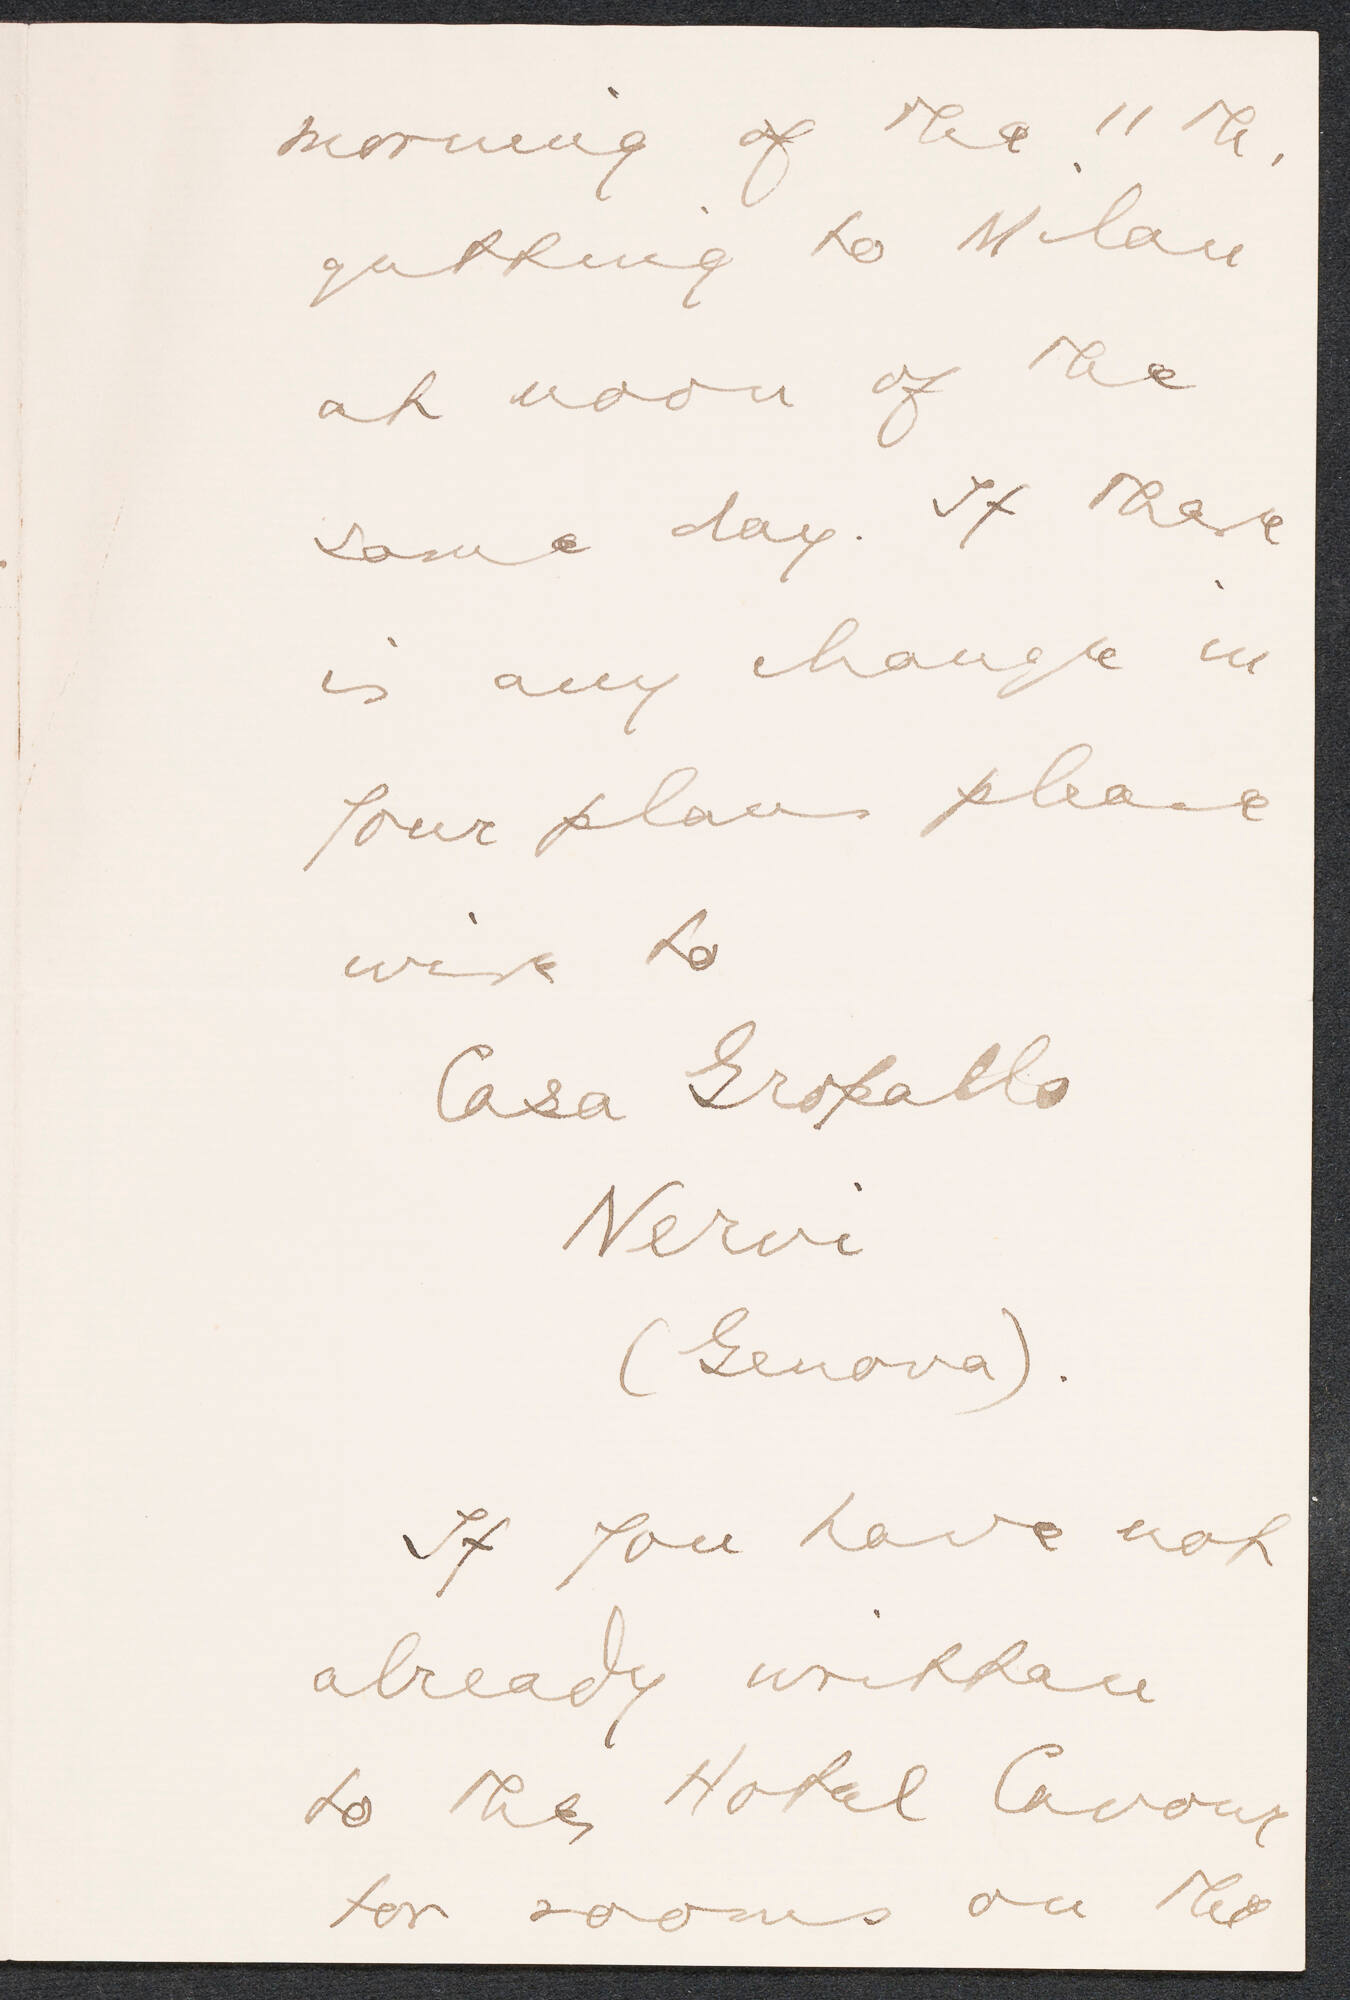 morning of the 11th,
getting to Milan
at noon of the
same day. If there
is any change in
your plans please
wire to
Casa Gropallo
Nervi
(Genova).
If you have not
already written
to the Hotel Cavour
for rooms on the